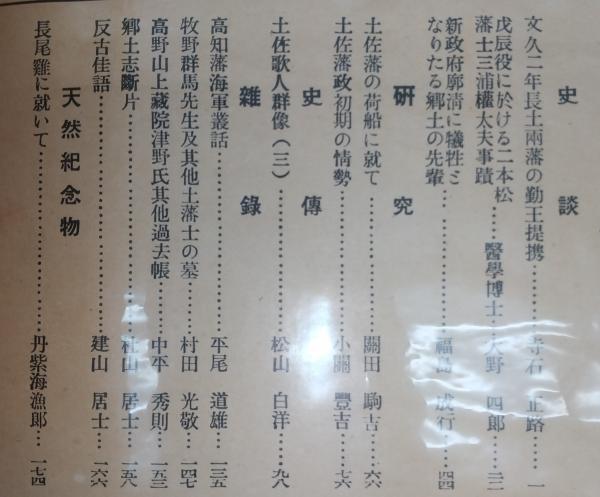 史談
文久二年長土兩藩の勤王提携………寺石 正路……一
戊辰役に於ける二本松
藩士三浦權太夫事蹟……醫學博士…大野 四郎……三二
新政府廓淸に犧牲と
なりたる郷土の先輩………福島 成行……四四
硏究
土佐藩の荷船に就て………關田 駒吉……六六
土佐藩政初期の情勢………小關 豐吉……七六
史傳
土佐歌人群像(三)………松山 白洋……九八
雜錄
高知藩海軍叢話………平尾 道雄……一三五
牧野群馬先生及其他土藩士の墓………村田 光敬……一四七
高野山上藏院津野氏其他過去帳………中平 秀則……一五三
郷土志斷片………杜山 居士……一五八
反古佳語………建山 居士……一六六
天然紀念物
長尾雞に就いて………丹紫海漁郞……一七四